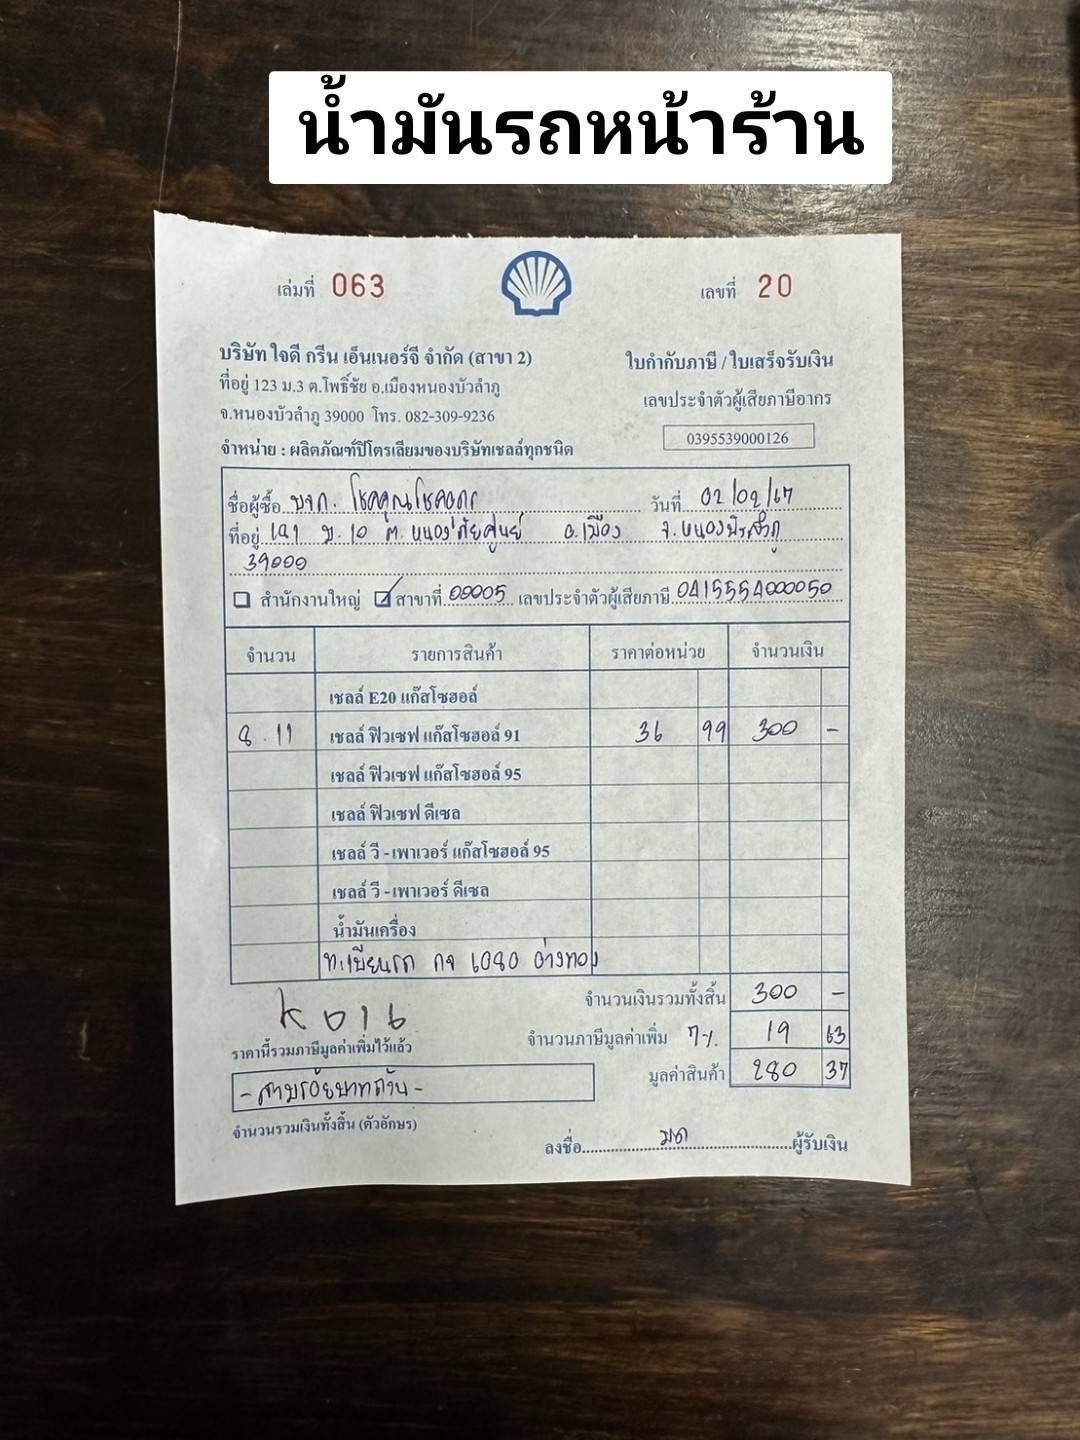 น้ำมันรถหน้าร้าน
เล่มที่ 063
เลขที่ 20
บริษัท ใจดี กรีน เอ็นเนอร์จี จำกัด (สาขา 2)
ที่อยู่ 123 ม.3 ต.โพธิ์ชัย อ.เมืองหนองบัวลำภู
จ.หนองบัวลำภู 39000 โทร. 082-309-9236
จำหน่าย : ผลิตภัณฑ์ปิโตรเลียมของบริษัทเชลล์ทุกชนิด
ใบกำกับภาษี / ใบเสร็จรับเงิน
เลขประจำตัวผู้เสียภาษีอากร
0395539000126
ชื่อผู้ซื้อ บจก. โชคคูณโชค วันที่ 02/02/67
ที่อยู่ ม.10 ต. หนองภัยศูนย์ อ.เมือง จ.หนองบัวลำภู
39000
สำนักงานใหญ่ สาขาที่ 00005 เลขประจำตัวผู้เสียภาษี 0415554000050
จำนวน รายการสินค้า ราคาต่อหน่วย จำนวนเงิน
เชลล์ E20 แก๊สโซฮอล์
8.11 เชลล์ ฟิวเซฟ แก๊สโซฮอล์ 91 36 99 300 -
เชลล์ ฟิวเซฟ แก๊สโซฮอล์ 95
เชลล์ ฟิวเซฟ ดีเซล
เชลล์ วี -เพาเวอร์ แก๊สโซฮอล์ 95
เชลล์ วี -เพาเวอร์ ดีเซล
น้ำมันเครื่อง
ทะเบียนรถ กจ 6080 อ่างทอง
จำนวนเงินรวมทั้งสิ้น 300 -
ราคานี้รวมภาษีมูลค่าเพิ่มไว้แล้ว
จำนวนภาษีมูลค่าเพิ่ม 7% 19 63
มูลค่าสินค้า 280 37
-สามร้อยบาทถ้วน-
จำนวนรวมเงินทั้งสิ้น (ตัวอักษร)
ลงชื่อ มด ผู้รับเงิน